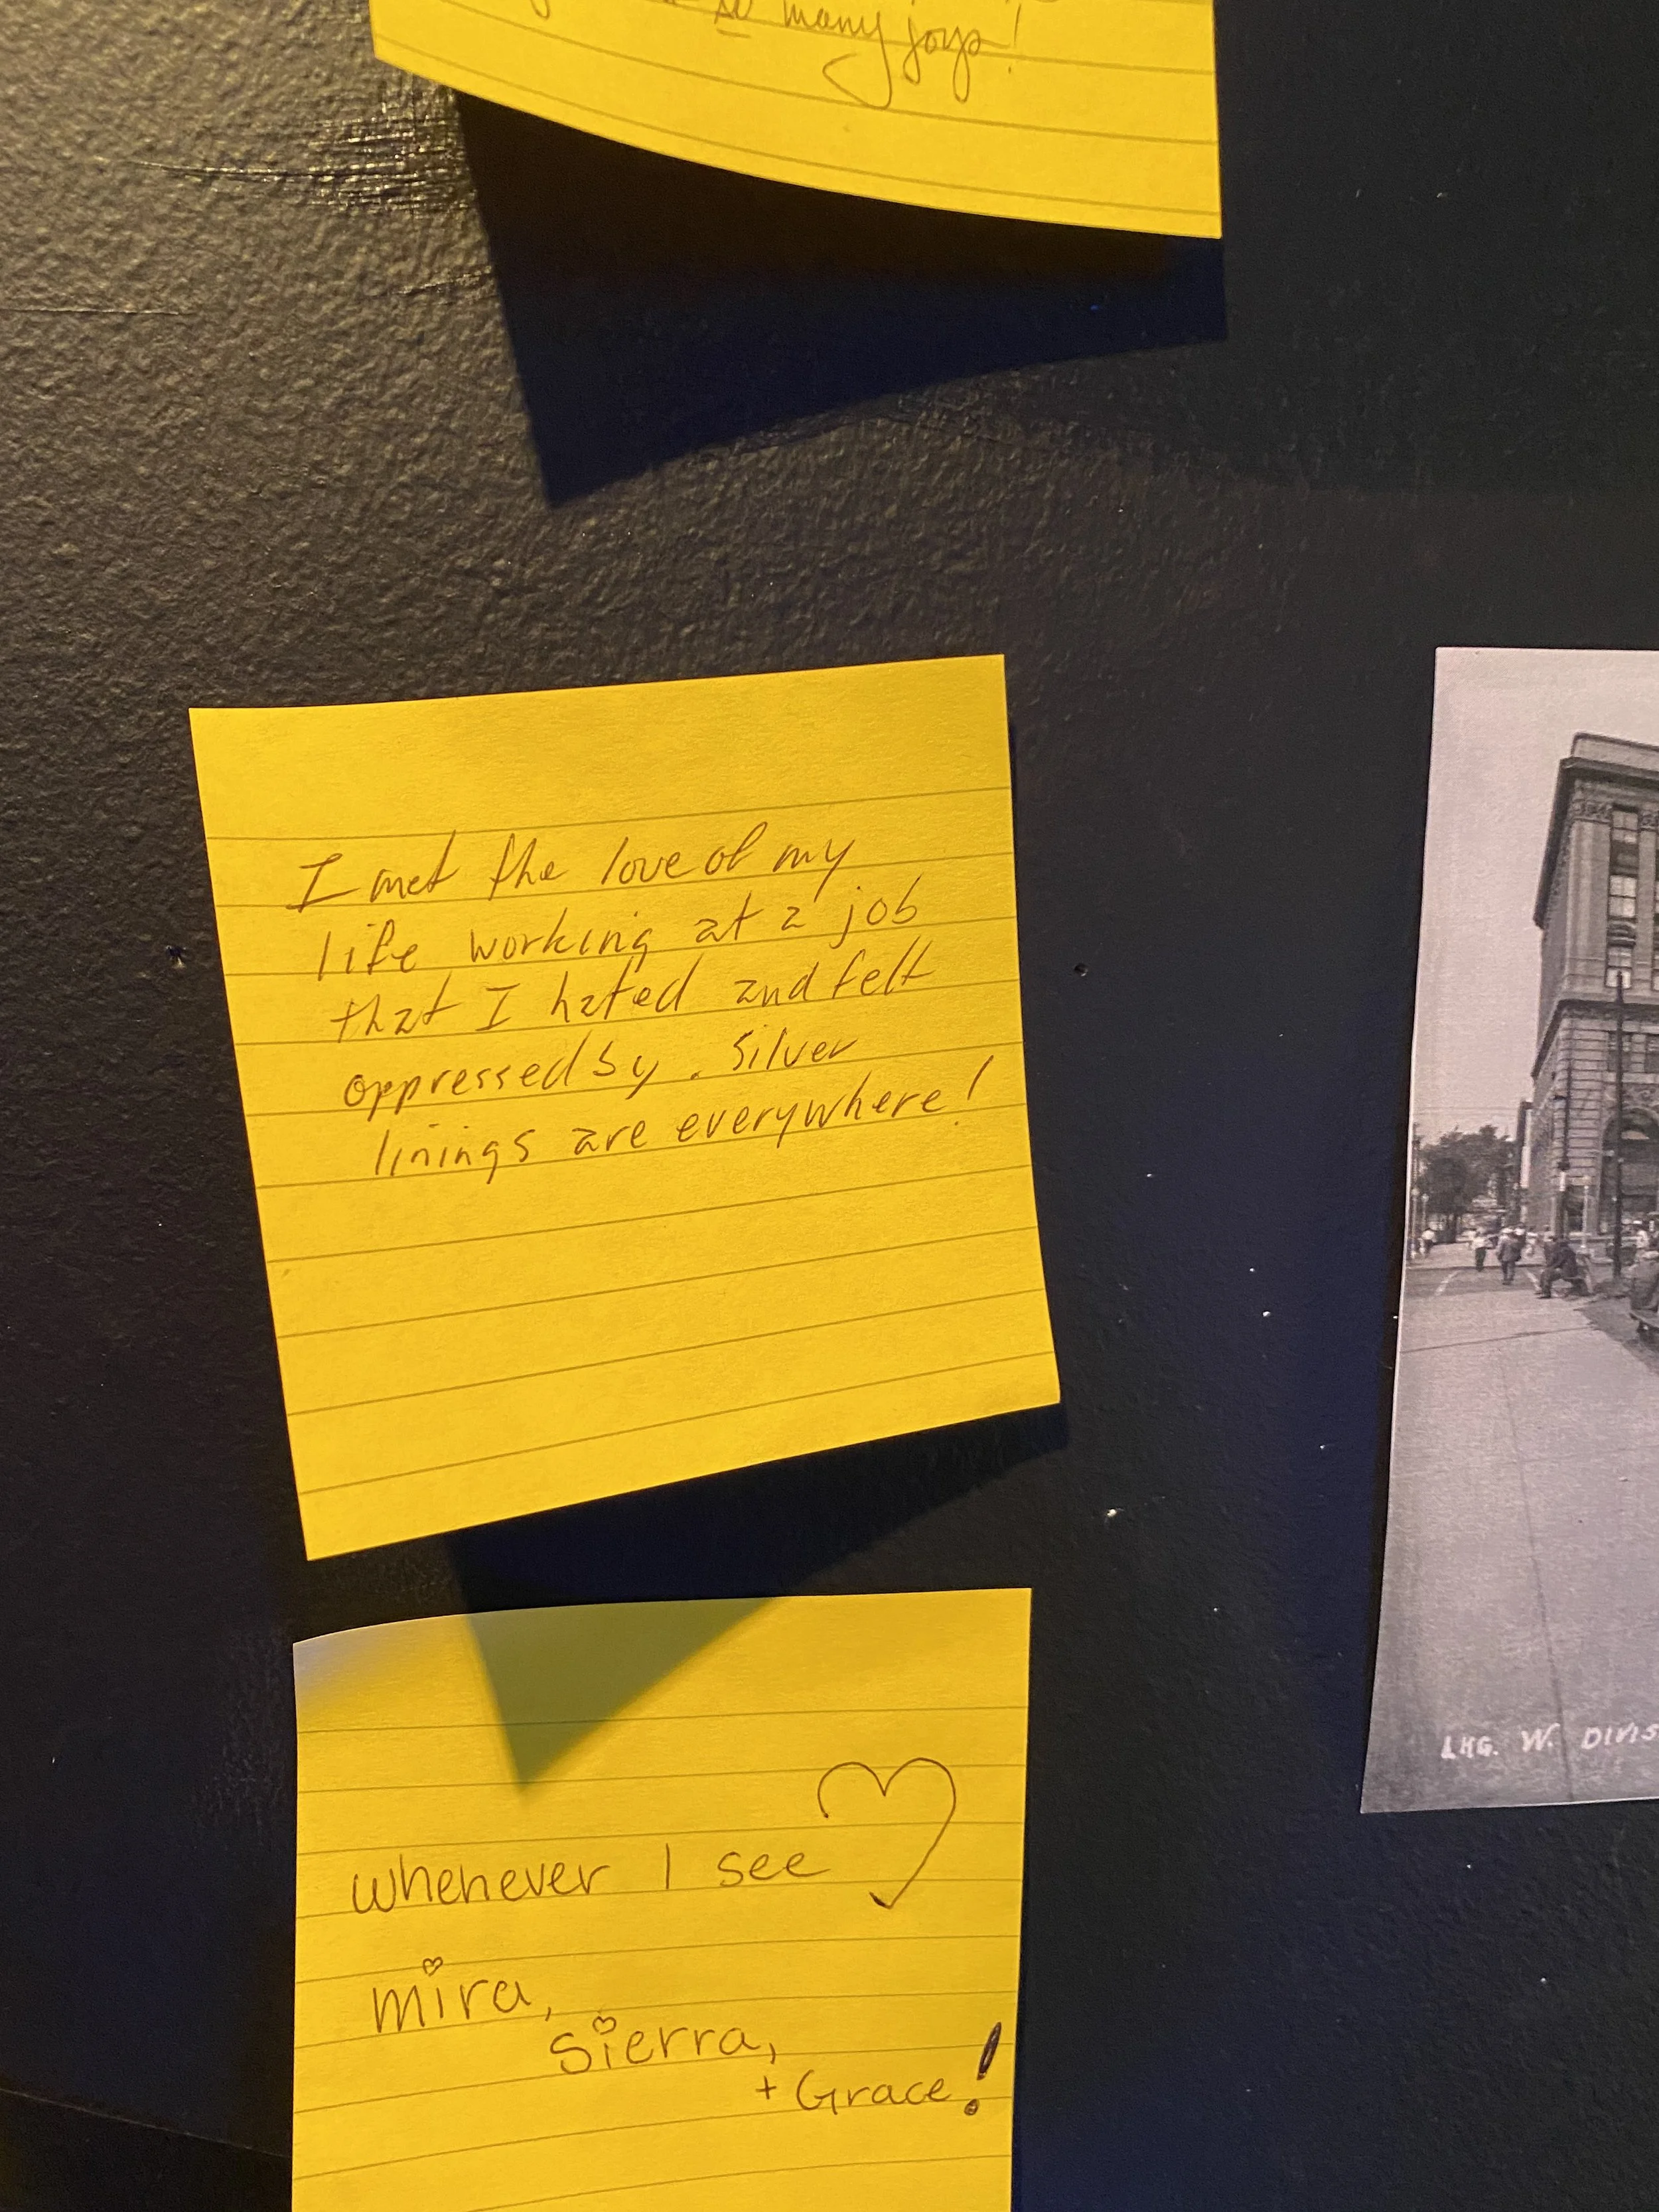 so many joys!
I met the love of my
life working at a job
that I hated and felt
oppressed by. Silver
linings are everywhere!
whenever I see
mira,
sierra,
+ Grace!
W. DIVIS